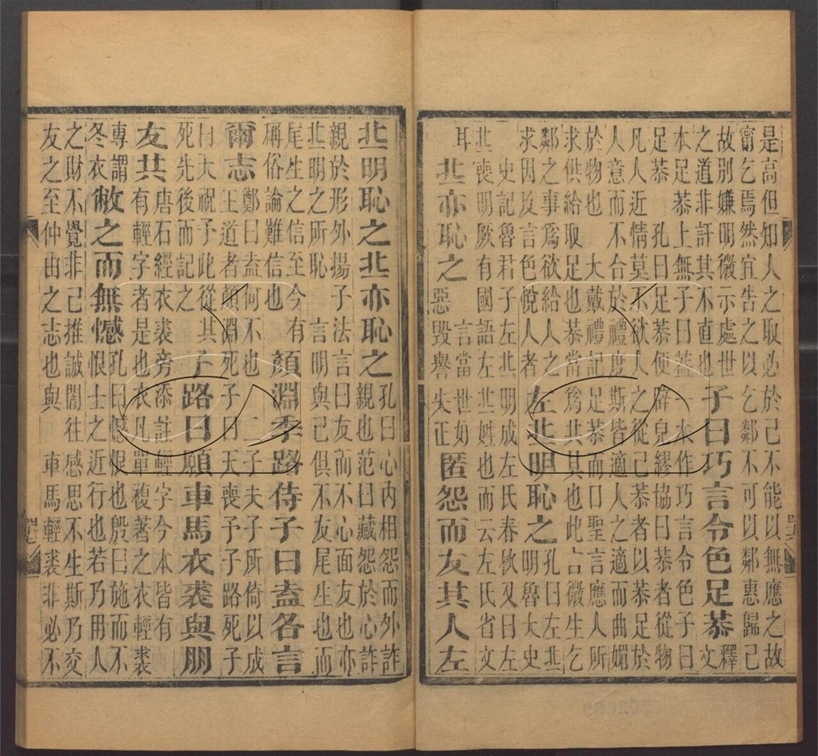 是高但知人之取必於己不能以無應之故
甯乞焉然宜告之以乞鄰不可以鄰惠歸己
故別嫌明微示處世
之道非訐其不直也
子曰巧言令色足恭
釋
文
本足恭上無子曰葢一本作巧言令色子曰
足恭 孔曰足恭便辟皃繆協曰恭者從物
凡人近情莫不欲人之從己恭者以恭足於
人意而不合於禮度斯皆適人之適而曲媚
於物也 大戴禮記足恭而口聖言應人所
求供給取足也恭當爲共其也此言微生乞
鄰之事爲欲給人之
求因及言色悅人者
左丘明恥之
孔曰左丘
明魯大史
史記魯君子左丘明成左氏春秋又曰左
丘喪明厥有國語左丘姓也而云左氏省文
耳
丘亦恥之
言當世如
惡毀譽失正
匿怨而友其人左
丘明恥之丘亦恥之
孔曰心內相怨而外詐
親也范曰藏怨於心詐
親於形外揚子法言曰友而不心面友也亦
丘明之所恥 言明與己俱不友尾生也而
尾生之信至今有
稱俗論難信也
顏淵季路侍子曰盍各言
爾志
鄭曰盍何不也 二子夫子所倚以成
王道者顏淵死子曰天喪予子路死子
曰天祝予此從其
死先後而記之
子路曰願車馬衣裘與朋
友共
唐石經衣裘旁添註輕字今本皆有
有輕字者是也衣凡單複著之衣輕裘
專謂
冬衣
敝之而無憾
孔曰憾恨也殷曰施而不
恨士之近行也若乃用人
之財不覺非己推誠闇往感思不生斯乃交
友之至仲由之志也與 車馬輕裘非必不